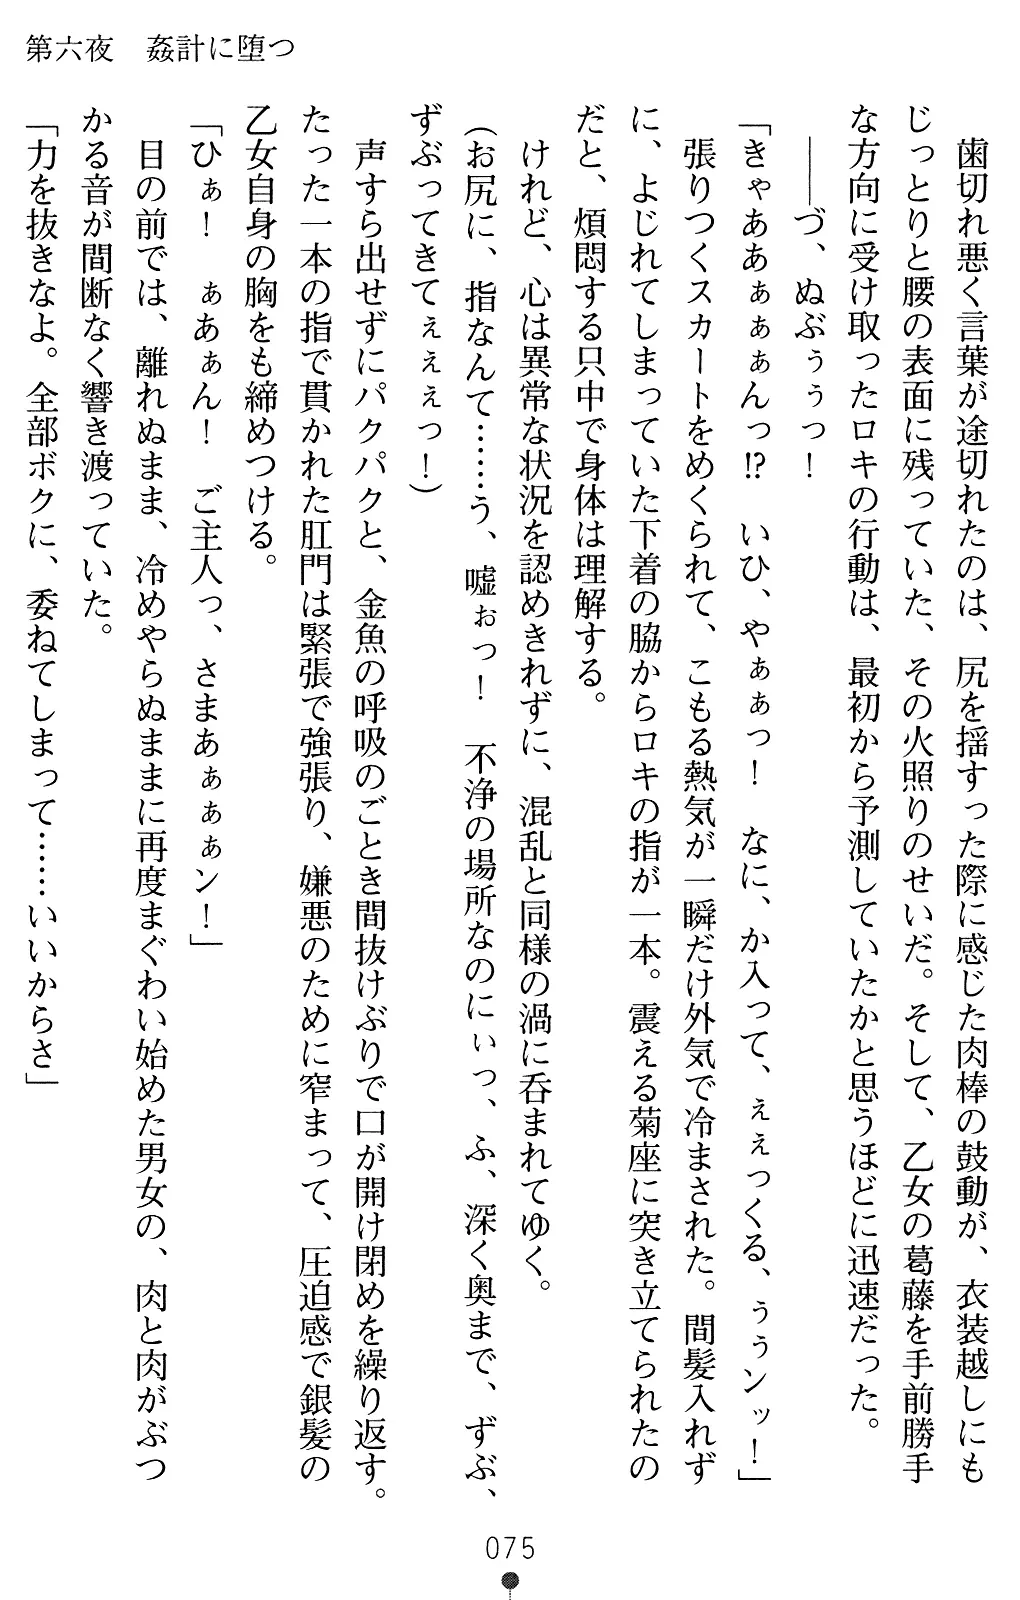 第六夜　姦計に堕つ
　歯切れ悪く言葉が途切れたのは、尻を揺すった際に感じた肉棒の鼓動が、衣装越しにも
じっとりと腰の表面に残っていた、その火照りのせいだ。そして、乙女の葛藤を手前勝手
な方向に受け取ったロキの行動は、最初から予測していたかと思うほどに迅速だった。
　――づ、ぬぶぅぅっ！
「きゃああぁぁぁんっ!?　いひ、やぁぁっ！　なに、か入って、ぇぇっくる、ぅぅンッ！」
　張りつくスカートをめくられて、こもる熱気が一瞬だけ外気で冷まされた。間髪入れず
に、よじれてしまっていた下着の脇からロキの指が一本。震える菊座に突き立てられたの
だと、煩悶する只中で身体は理解する。
　けれど、心は異常な状況を認めきれずに、混乱と同様の渦に呑まれてゆく。
（お尻に、指なんて……う、嘘ぉっ！　不浄の場所なのにぃっ、ふ、深く奥まで、ずぶ、
ずぶってきてぇぇぇっ！）
　声すら出せずにパクパクと、金魚の呼吸のごとき間抜けぶりで口が開け閉めを繰り返す。
たった一本の指で貫かれた肛門は緊張で強張り、嫌悪のために窄まって、圧迫感で銀髪の
乙女自身の胸をも締めつける。
「ひぁ！　ぁあぁん！　ご主人っ、さまあぁぁぁン！」
　目の前では、離れぬまま、冷めやらぬままに再度まぐわい始めた男女の、肉と肉がぶつ
かる音が間断なく響き渡っていた。
「力を抜きなよ。全部ボクに、委ねてしまって……いいからさ」
075